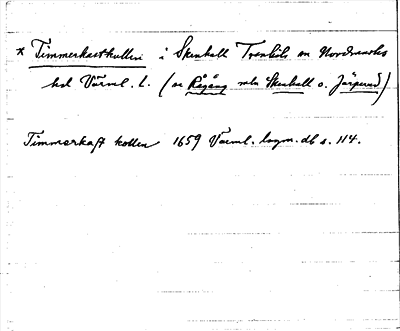 * Timmerkastkullen i Skenhall Trankils sn Nordmarks
hd Värml. l. (se Rågång mln Skenhall o. Järperud)
Timmerkast kollen 1659 Värml. lagm. db s. 114.